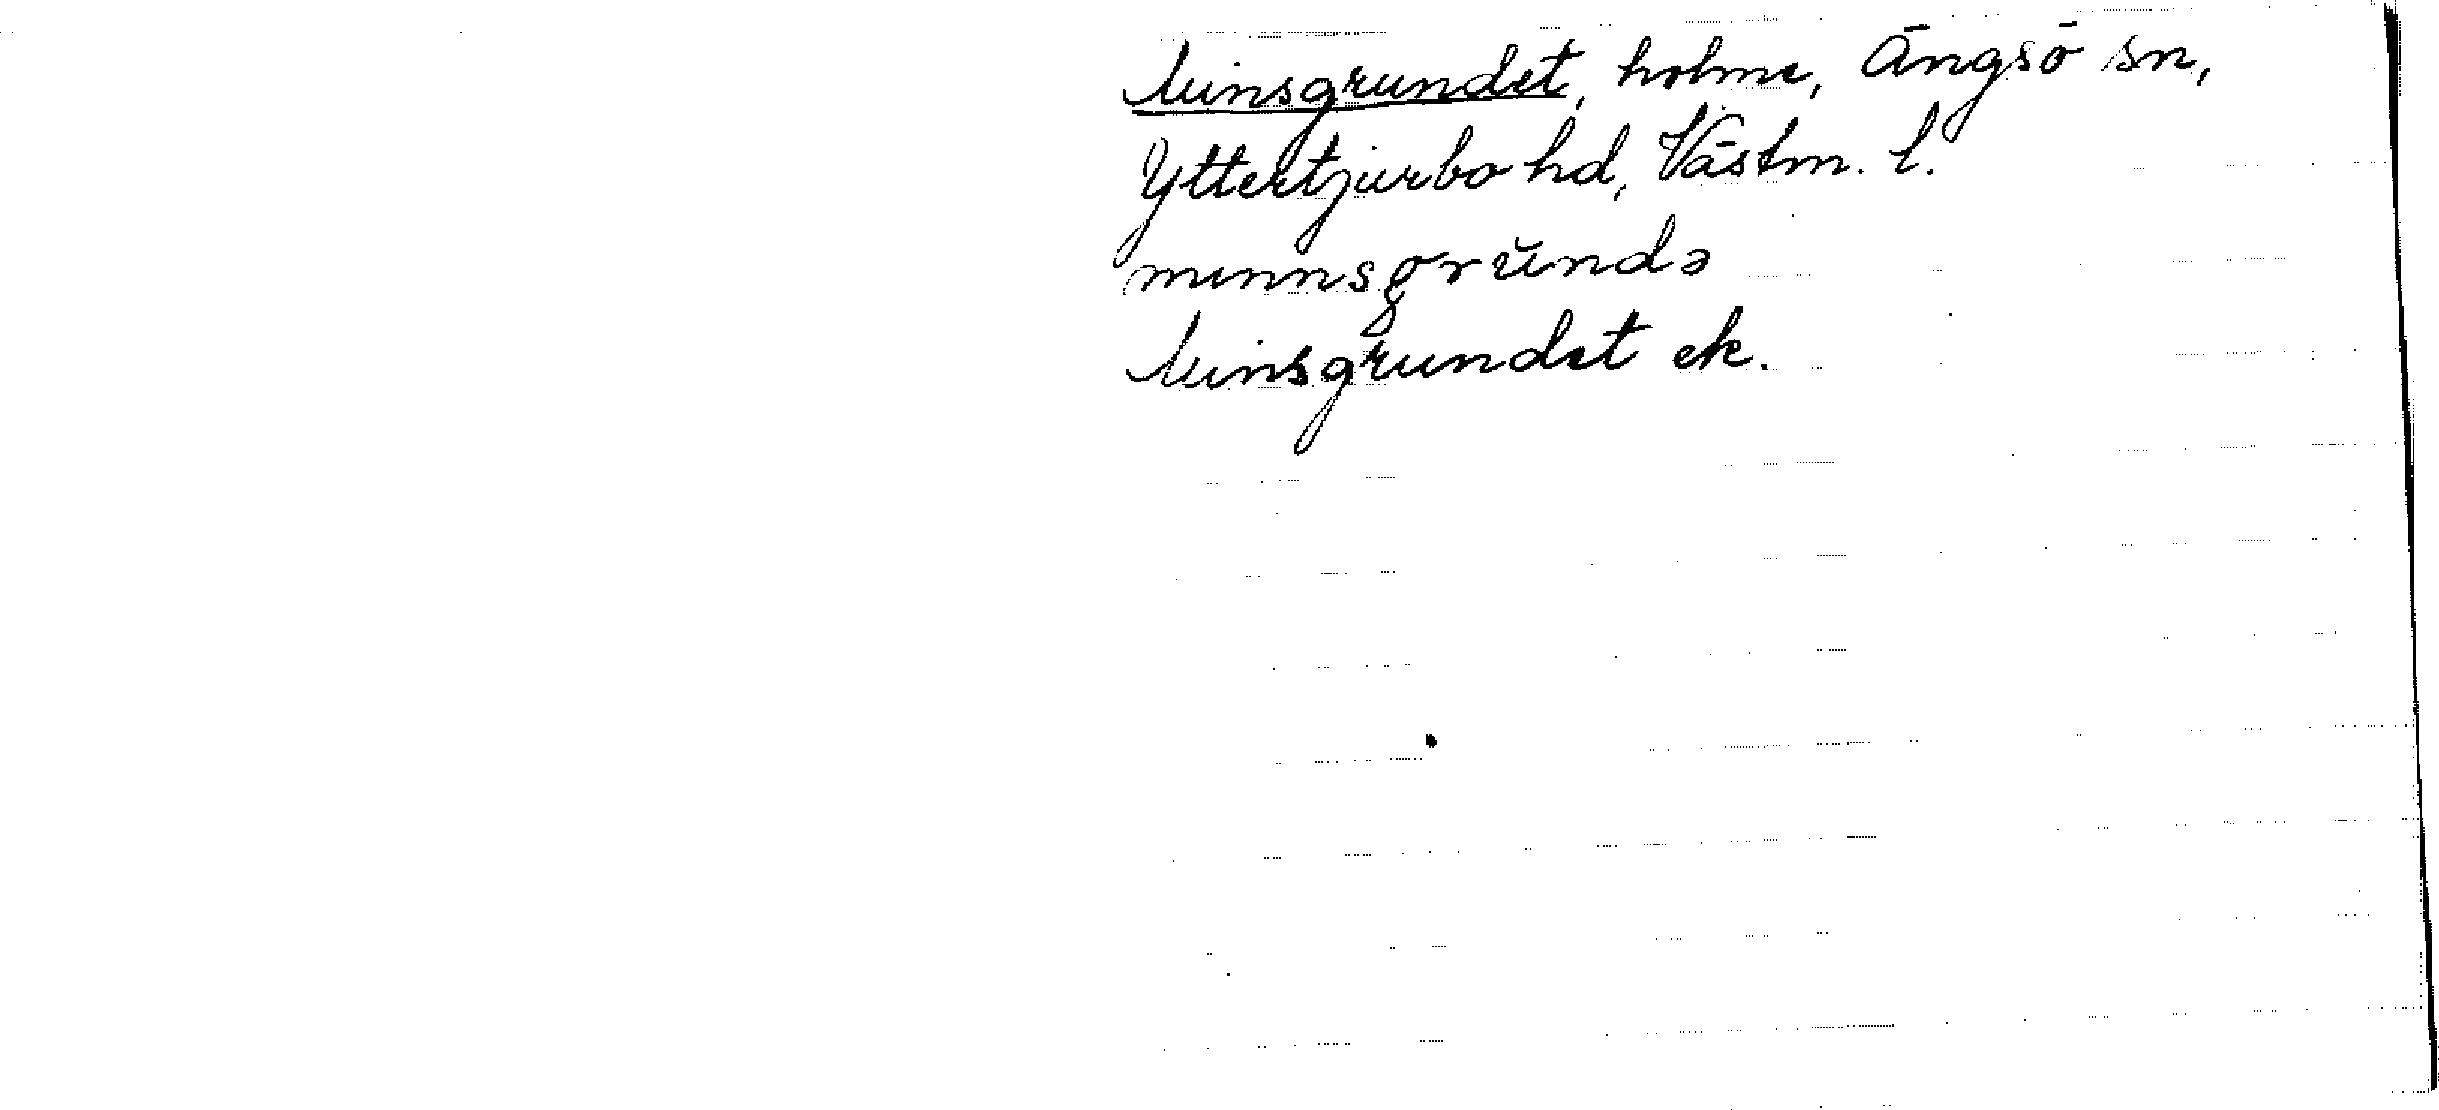 Minsgrundet, holme, Ängsö sn,
Yttertjurbo hd, Västm. l.
mınnsgrŭndə
Minsgrundet ek.